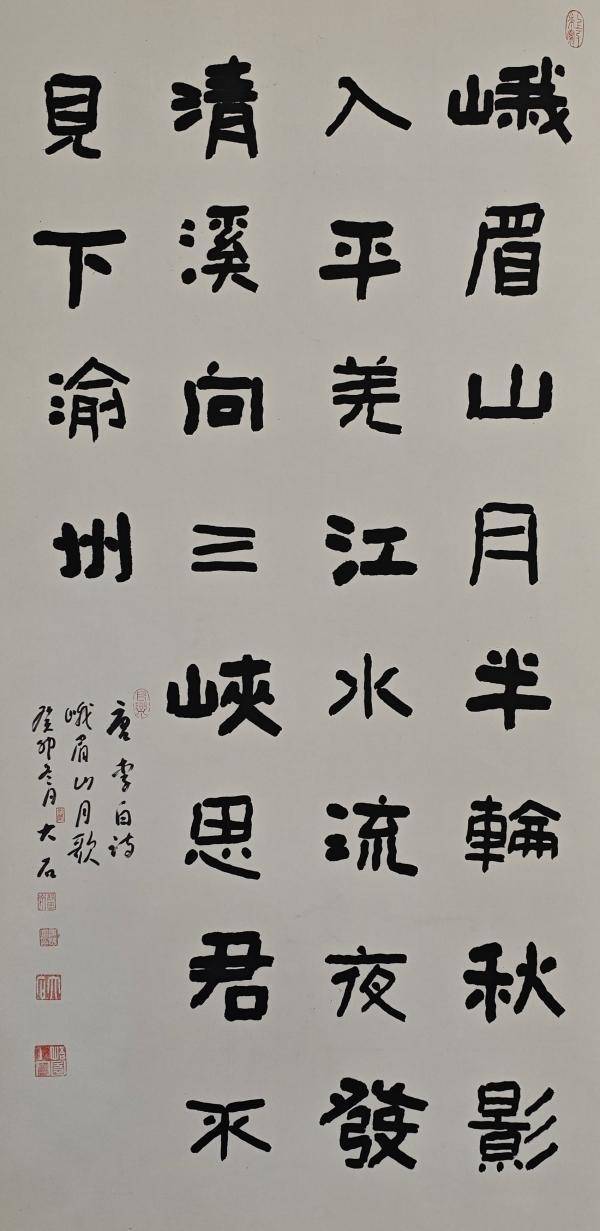 峨眉山月半輪秋影
入平羌江水流夜發
清溪向三峽思君不
見下渝州
唐李白詩
峨眉山月歌
癸卯冬月大石